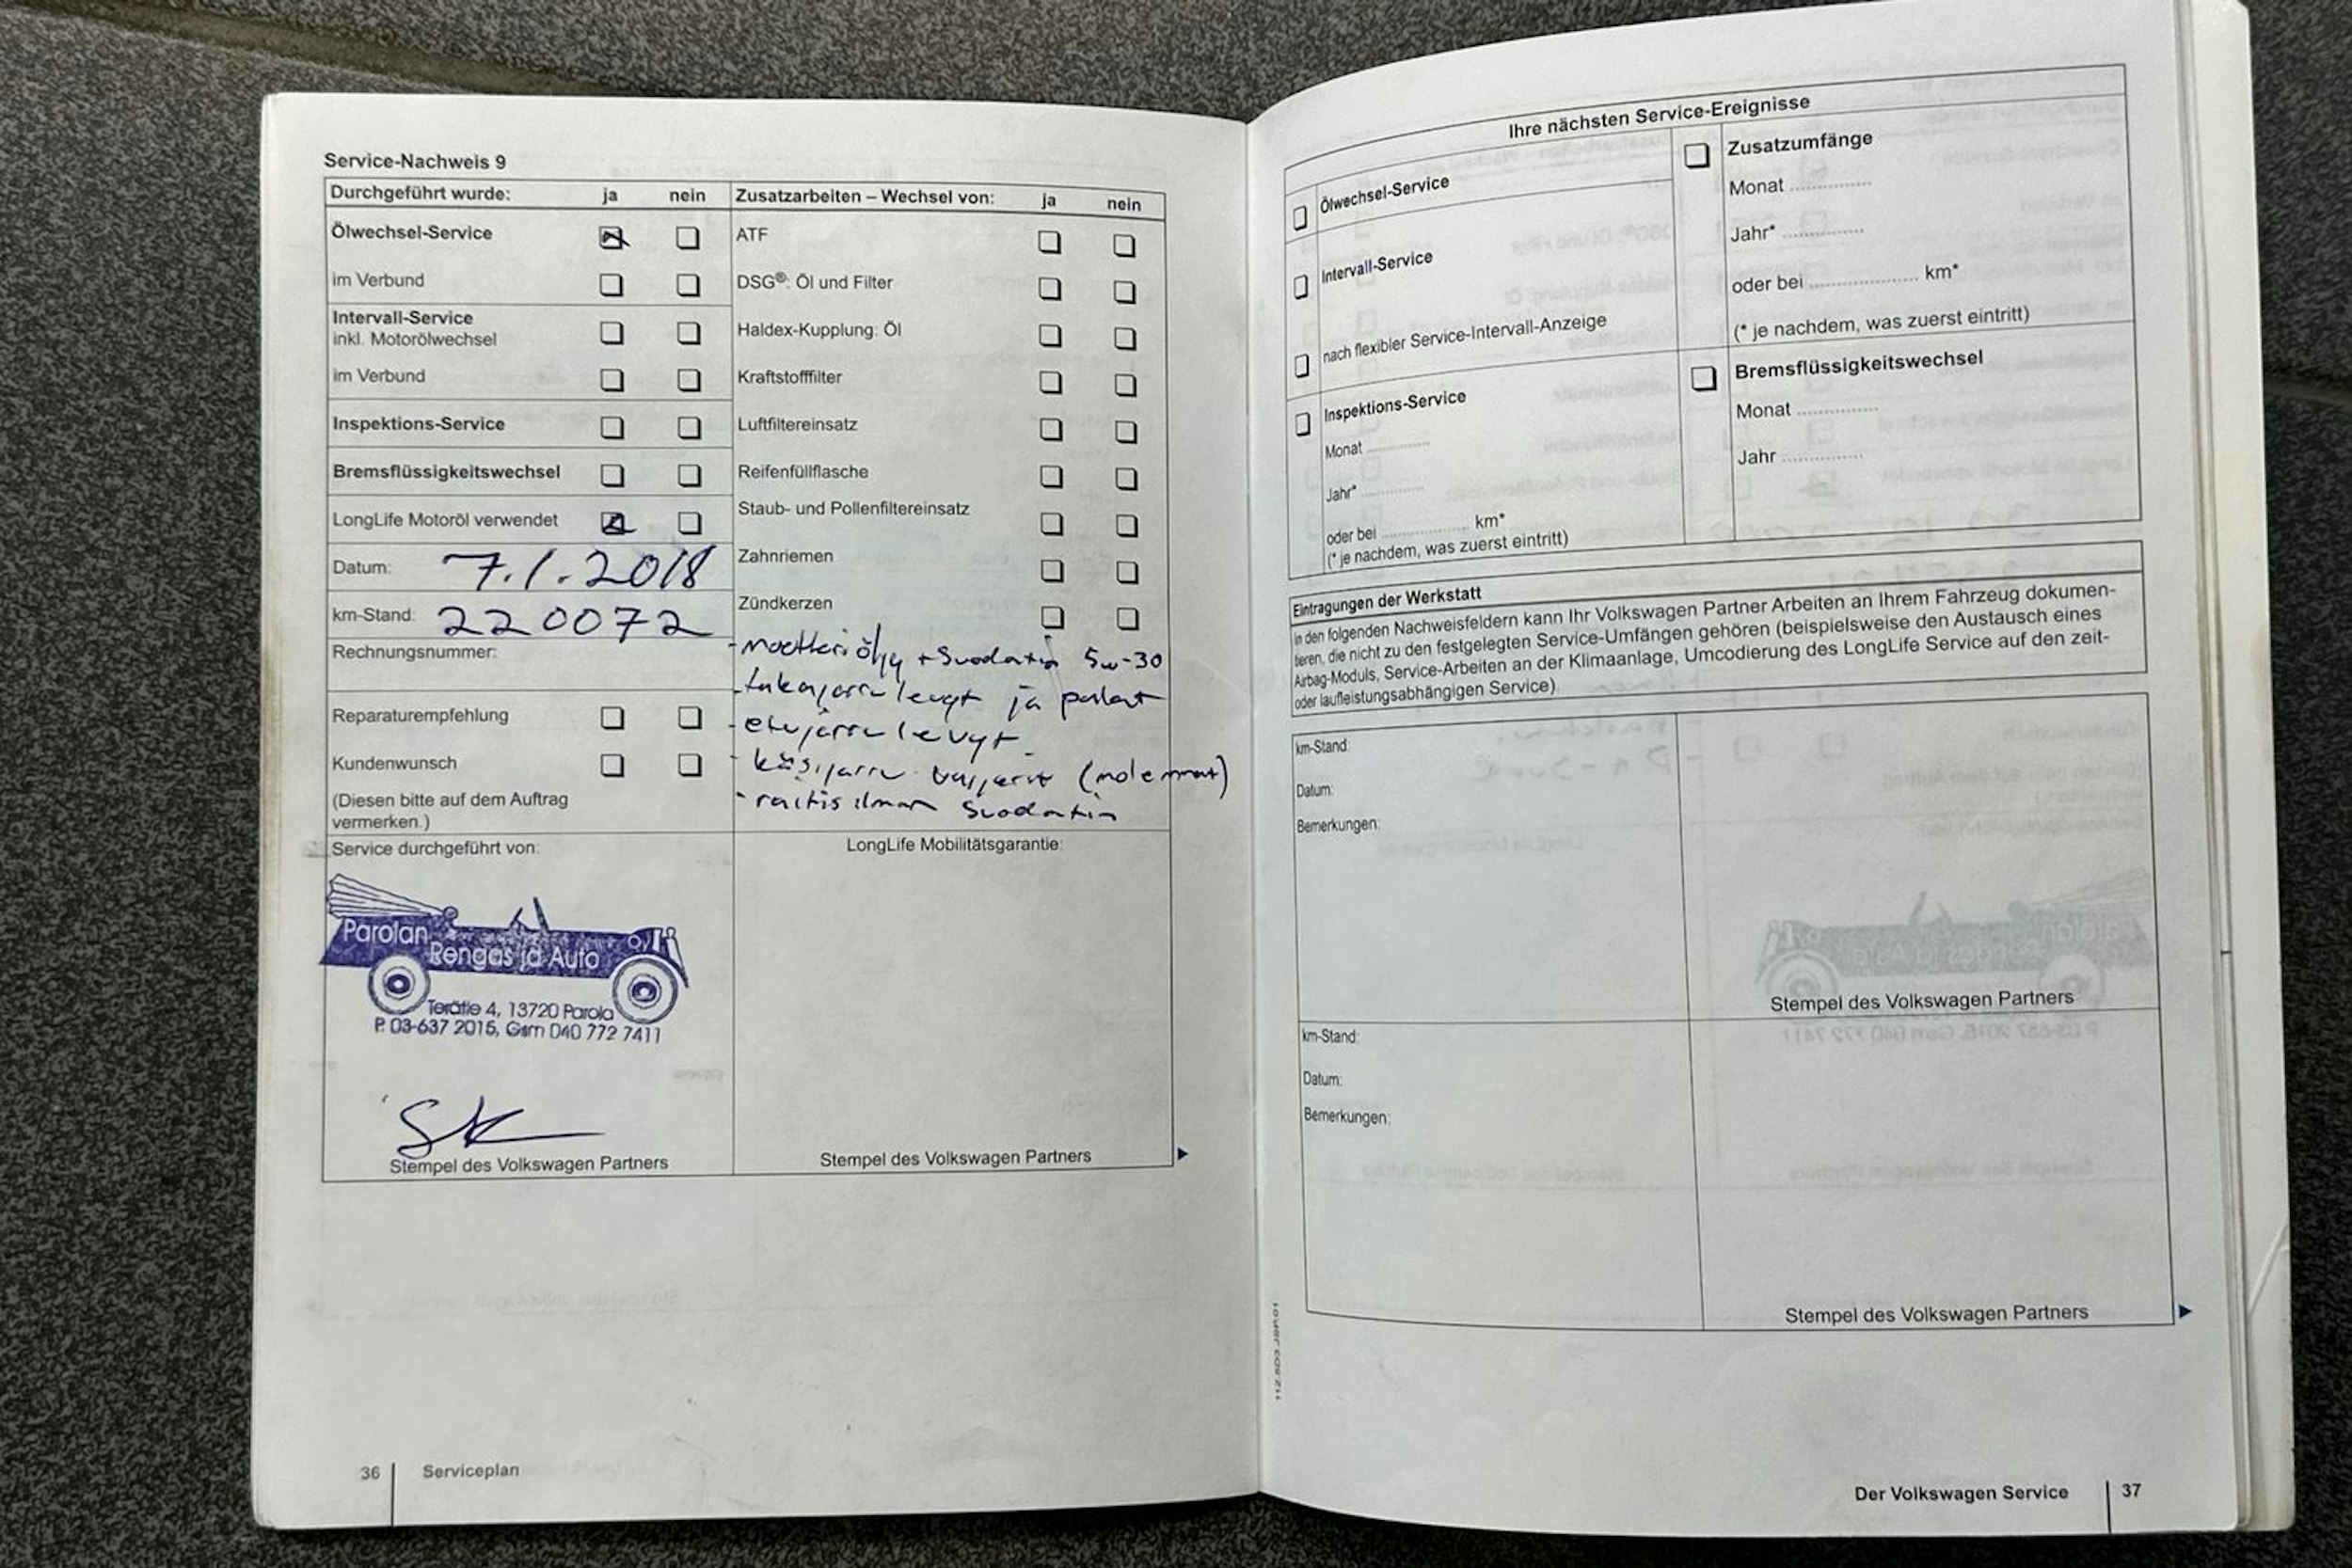 Service-Nachweis 9
Durchgeführt wurde: ja nein
Ölwechsel-Service
im Verbund
Intervall-Service
inkl. Motorölwechsel
im Verbund
Inspektions-Service
Bremsflüssigkeitswechsel
LongLife Motoröl verwendet
Datum: 7.1.2018
km-Stand: 220072
Rechnungsnummer:
Reparaturempfehlung
Kundenwunsch
(Diesen bitte auf dem Auftrag
vermerken.)
Zusatzarbeiten – Wechsel von: ja nein
ATF
DSG®: Öl und Filter
Haldex-Kupplung: Öl
Kraftstofffilter
Luftfiltereinsatz
Reifenfüllflasche
Staub- und Pollenfiltereinsatz
Zahnriemen
Zündkerzen
- moottoriöljy + Suodatin 5w-30
- takajarru levyt ja palat
- etujarru levyt
- käsijarru vaijerit (molemmat)
- raitis ilman Suodatin
Service durchgeführt von:
Parolan
Rengas ja Auto
Terätie 4, 13720 Parola
P. 03-637 2015, Gsm 040 772 7411
SK
Stempel des Volkswagen Partners
LongLife Mobilitätsgarantie:
Stempel des Volkswagen Partners
36 Serviceplan
Ihre nächsten Service-Ereignisse
Ölwechsel-Service
Intervall-Service
nach flexibler Service-Intervall-Anzeige
Inspektions-Service
Monat ..............
Jahr* ..............
oder bei .................... km*
(* je nachdem, was zuerst eintritt)
Zusatzumfänge
Monat ..............
Jahr* ..............
oder bei .................... km*
(* je nachdem, was zuerst eintritt)
Bremsflüssigkeitswechsel
Monat ..............
Jahr ..............
Eintragungen der Werkstatt
In den folgenden Nachweisfeldern kann Ihr Volkswagen Partner Arbeiten an Ihrem Fahrzeug dokumen-
tieren, die nicht zu den festgelegten Service-Umfängen gehören (beispielsweise den Austausch eines
Airbag-Moduls, Service-Arbeiten an der Klimaanlage, Umcodierung des LongLife Service auf den zeit-
oder laufleistungsabhängigen Service).
km-Stand:
Datum:
Bemerkungen:
Stempel des Volkswagen Partners
km-Stand:
Datum:
Bemerkungen:
Stempel des Volkswagen Partners
Der Volkswagen Service 37